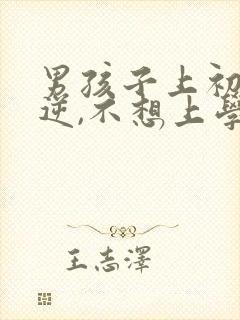 男孩子上初
逆,不想上學
王志澤